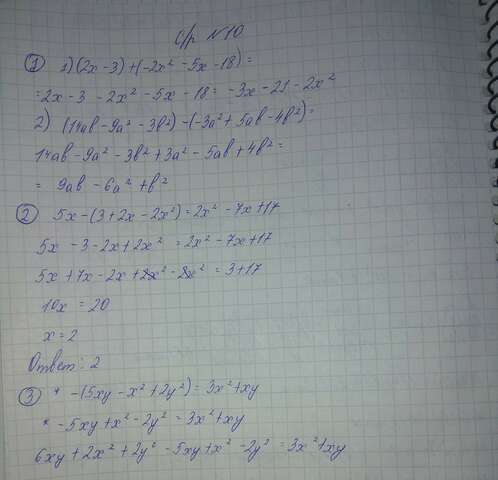 с/р №10
① 1) (2x - 3) + (-2x² - 5x - 18) =
= 2x - 3 - 2x² - 5x - 18 = -3x - 21 - 2x²
2) (14ab - 9a² - 3b²) - (-3a² + 5ab - 4b²) =
14ab - 9a² - 3b² + 3a² - 5ab + 4b² =
= 9ab - 6a² + b²
② 5x - (3 + 2x - 2x²) = 2x² - 7x + 17
5x - 3 - 2x + 2x² = 2x² - 7x + 17
5x + 7x - 2x + 2x² - 2x² = 3 + 17
10x = 20
x = 2
Ответ: 2
③ * - (5xy - x² + 2y²) = 3x² + xy
* - 5xy + x² - 2y² = 3x² + xy
6xy + 2x² + 2y² - 5xy + x² - 2y² = 3x² + xy